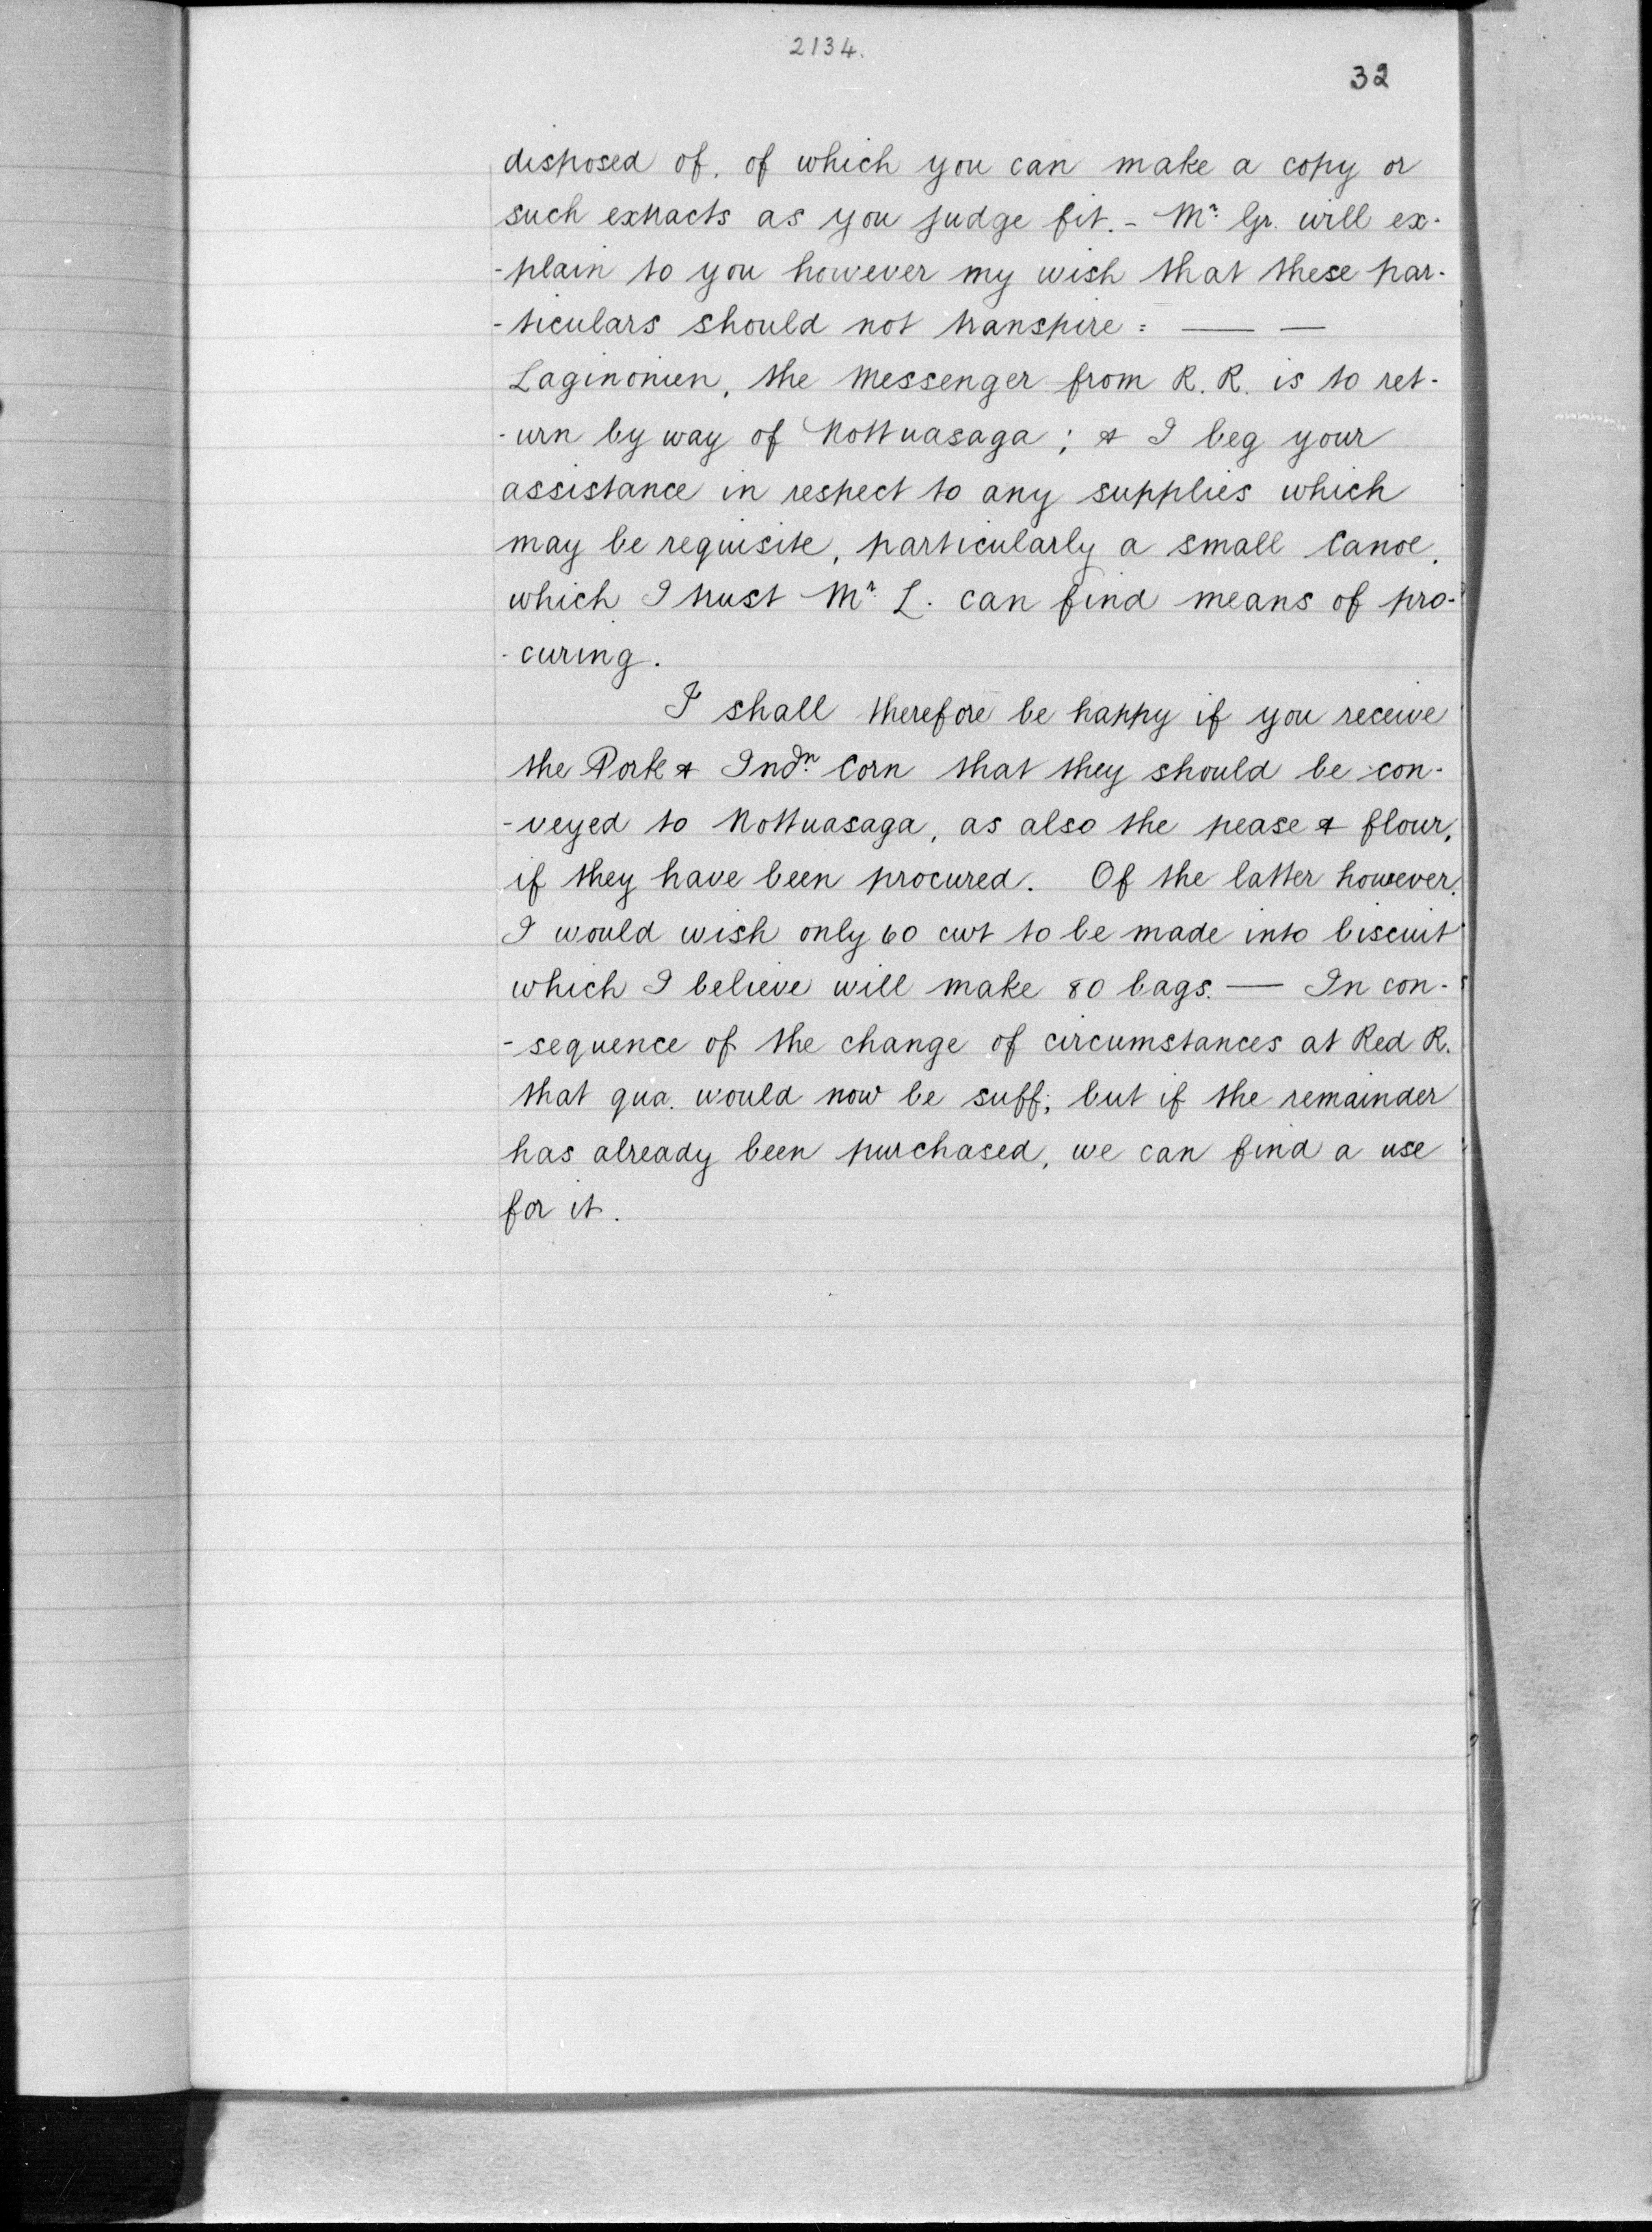 2134.
32
disposed of, of which you can make a copy or
such extracts as you judge fit. - Mr. Gr. will ex-
-plain to you however my wish that these par-
-ticulars should not transpire : — —
Laginonien, the Messenger from R. R. is to ret-
-urn by way of Nottuasaga ; & I beg your
assistance in respect to any supplies which
may be requisite, particularly a small Canoe,
which I trust Mr. L. can find means of pro-
-curing.
I shall therefore be happy if you receive
the Pork & Indn. Corn that they should be con-
-veyed to Nottuasaga, as also the pease & flour,
if they have been procured. Of the latter however,
I would wish only 60 cwt to be made into biscuit
which I believe will make 80 bags. — In con-
-sequence of the change of circumstances at Red R.
that qua. would now be suff; but if the remainder
has already been purchased, we can find a use
for it.